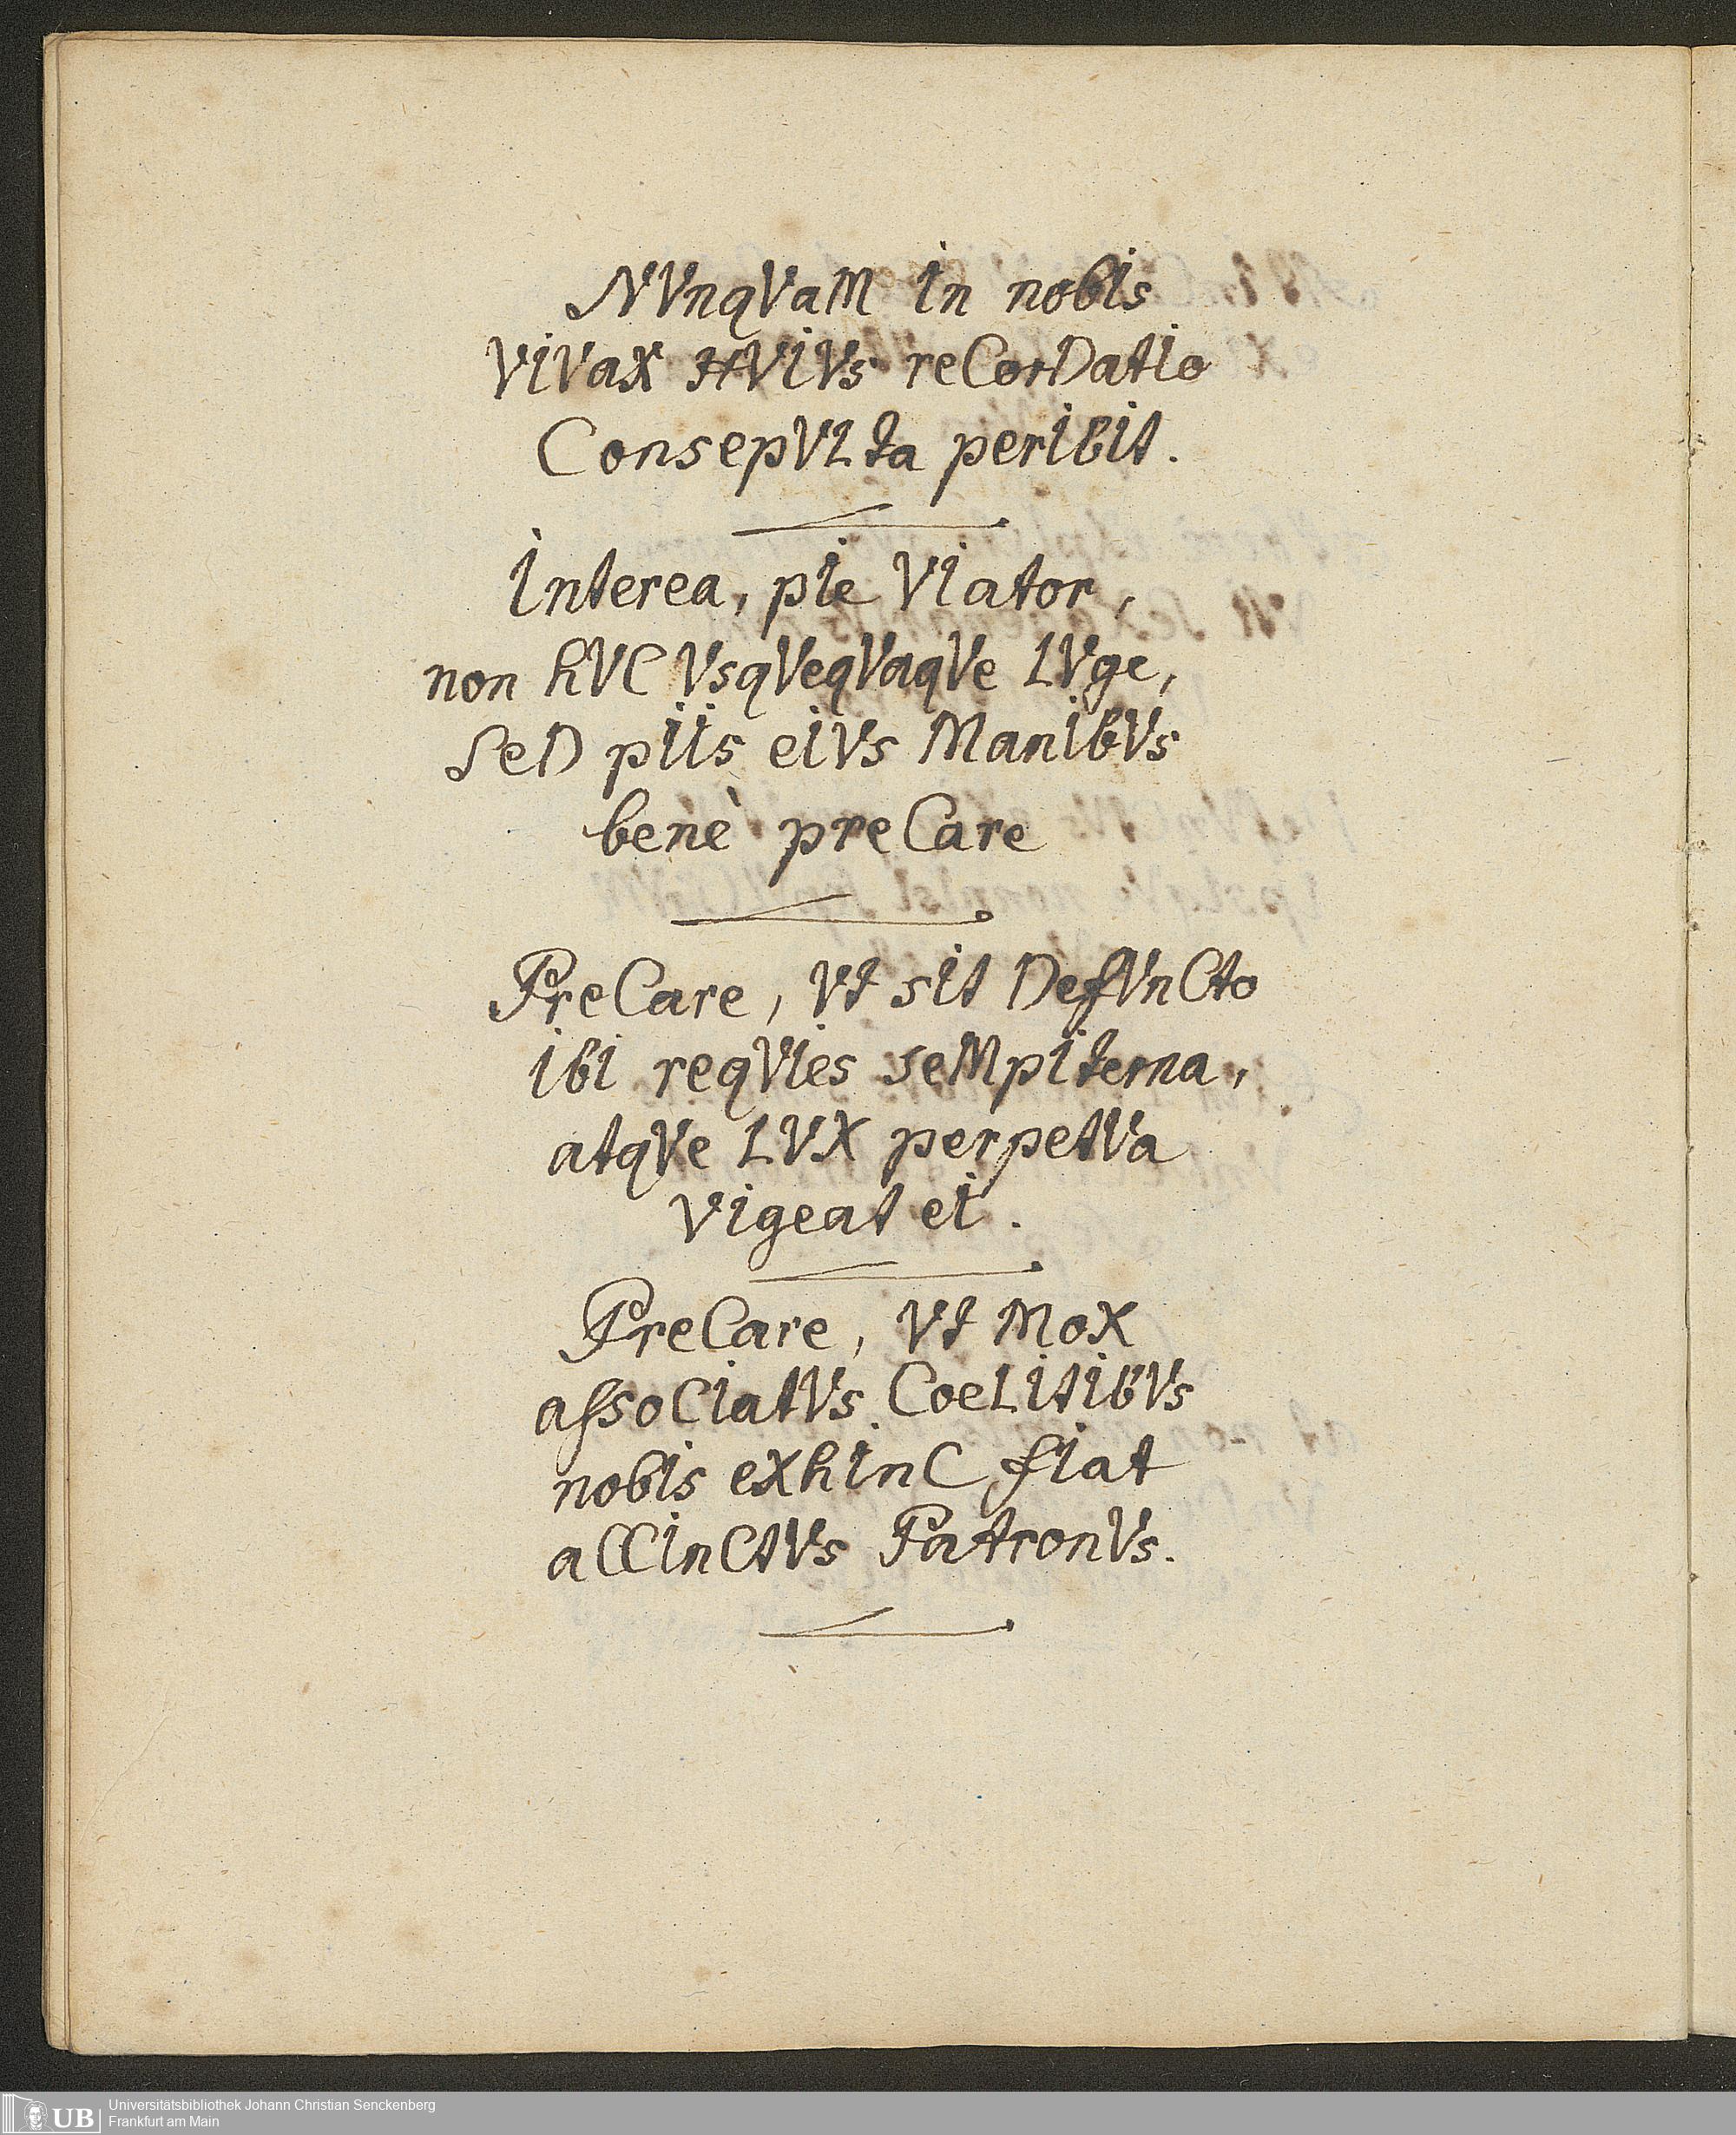 NVnqVaM In nobIs
VIVaX HVIVs reCorDatIo
ConsepVLta perIbIt.
Interea, pIe VIator,
non hVC VsqVeqVaqVe LVge,
SeD pIIs eIVs ManIbVs
benè preCare
PreCare, Vt sIt DefVnCto
IbI reqVIes seMpIterna,
atqVe LVX perpetVa
VIgeat eI.
PreCare, Vt MoX
assoCIatVs CoeLItIbVs
nobIs eXhInC fIat
aCCInCtVs PatronVs.
UB
Universitätsbibliothek Johann Christian Senckenberg
Frankfurt am Main